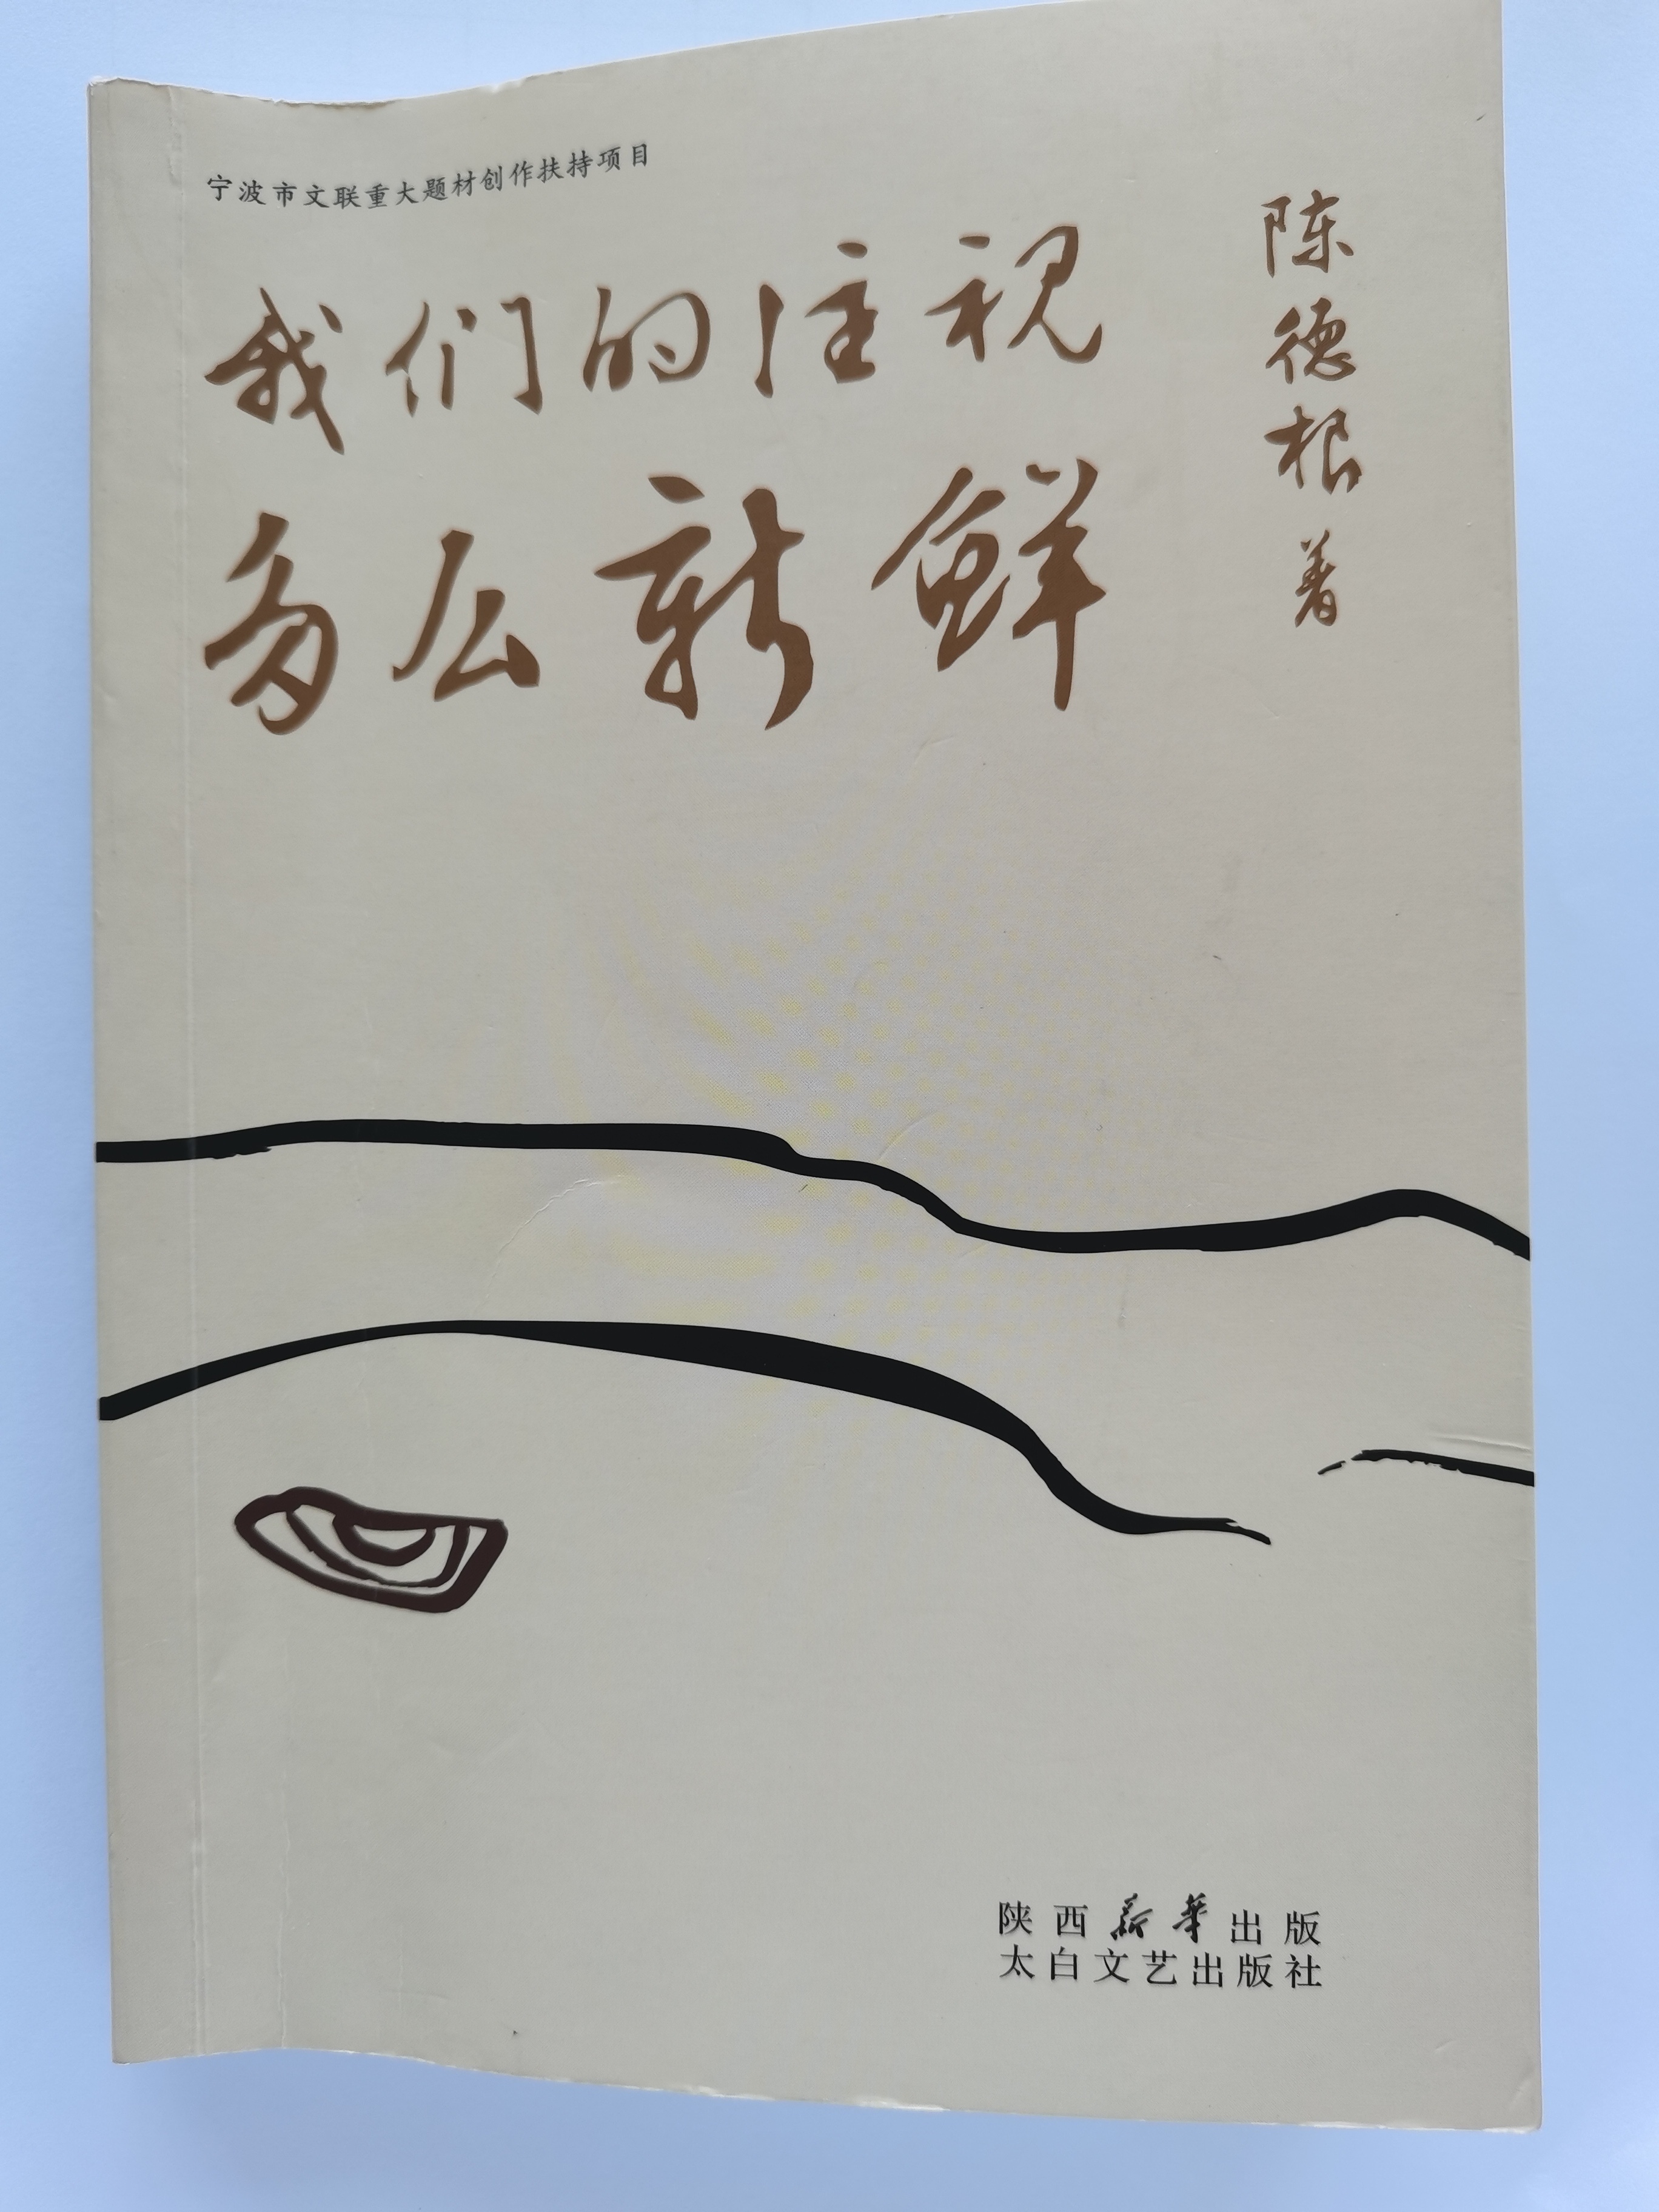 宁波市文联重大题材创作扶持项目
我们的注视
多么新鲜
陈德根著
陕西新华出版
太白文艺出版社